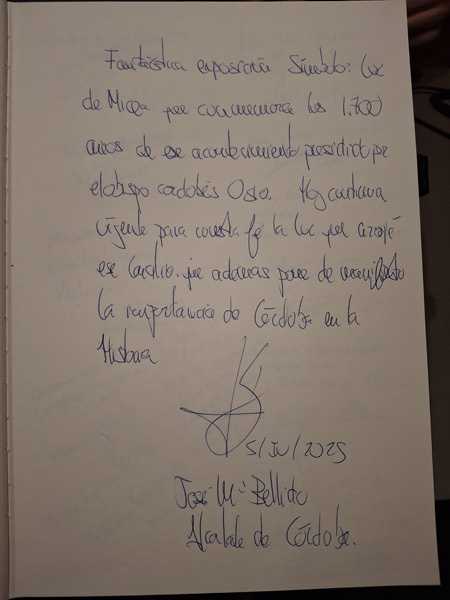 Fantástica exposición Símbolo: Luz
de Nicea que conmemora los 1.700
años de ese acontecimiento presidido por
el obispo cordobés Osio. Hoy continua
vigente para nuestra fé la luz que arrojó
ese Concilio. que además pone de manifiesto
la importancia de Córdoba en la
Historia
5/IV/2025
José Mª Bellido
Alcalde de Córdoba.